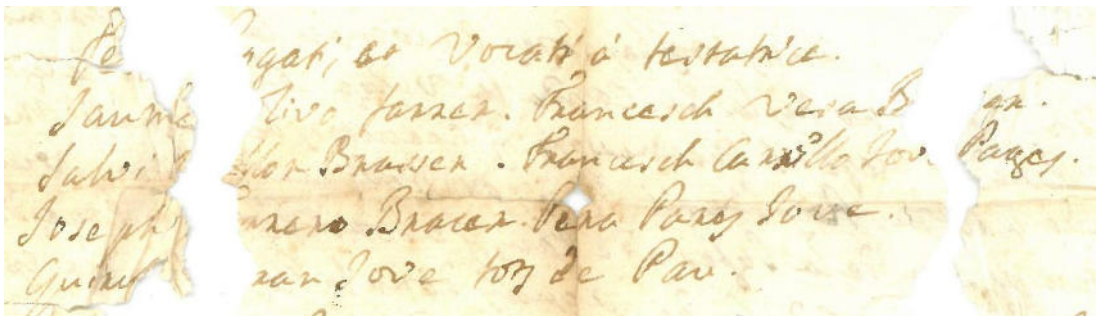 Te gati, et vocati á testatrice.
Jaume Tivo farrer. Francesch Vera B er.
Salvi llor Brasser. Francesch Carrillo Jove Pages.
Joseph rrero Bracer. Pera Pares Jove.
Quirc ran Jove tots de Pau.